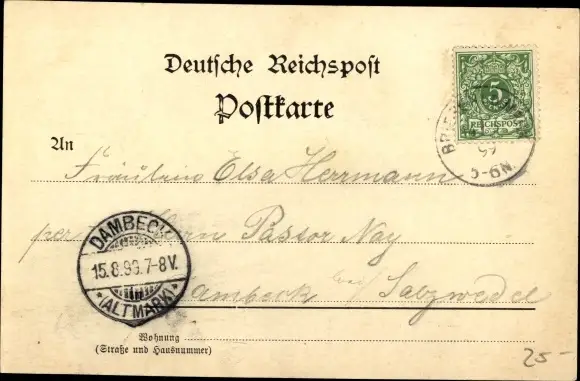 Deutsche Reichspost
Postkarte
5
REICHSPOST
99
5-6N.
An
Fräulein Elsa Herrmann
per Herrn Pastor Nay
DAMBECK
15.8.99.7-8V.
*(ALTMARK)*
Dambeck bei Salzwedel
Wohnung
(Straße und Hausnummer)
25-